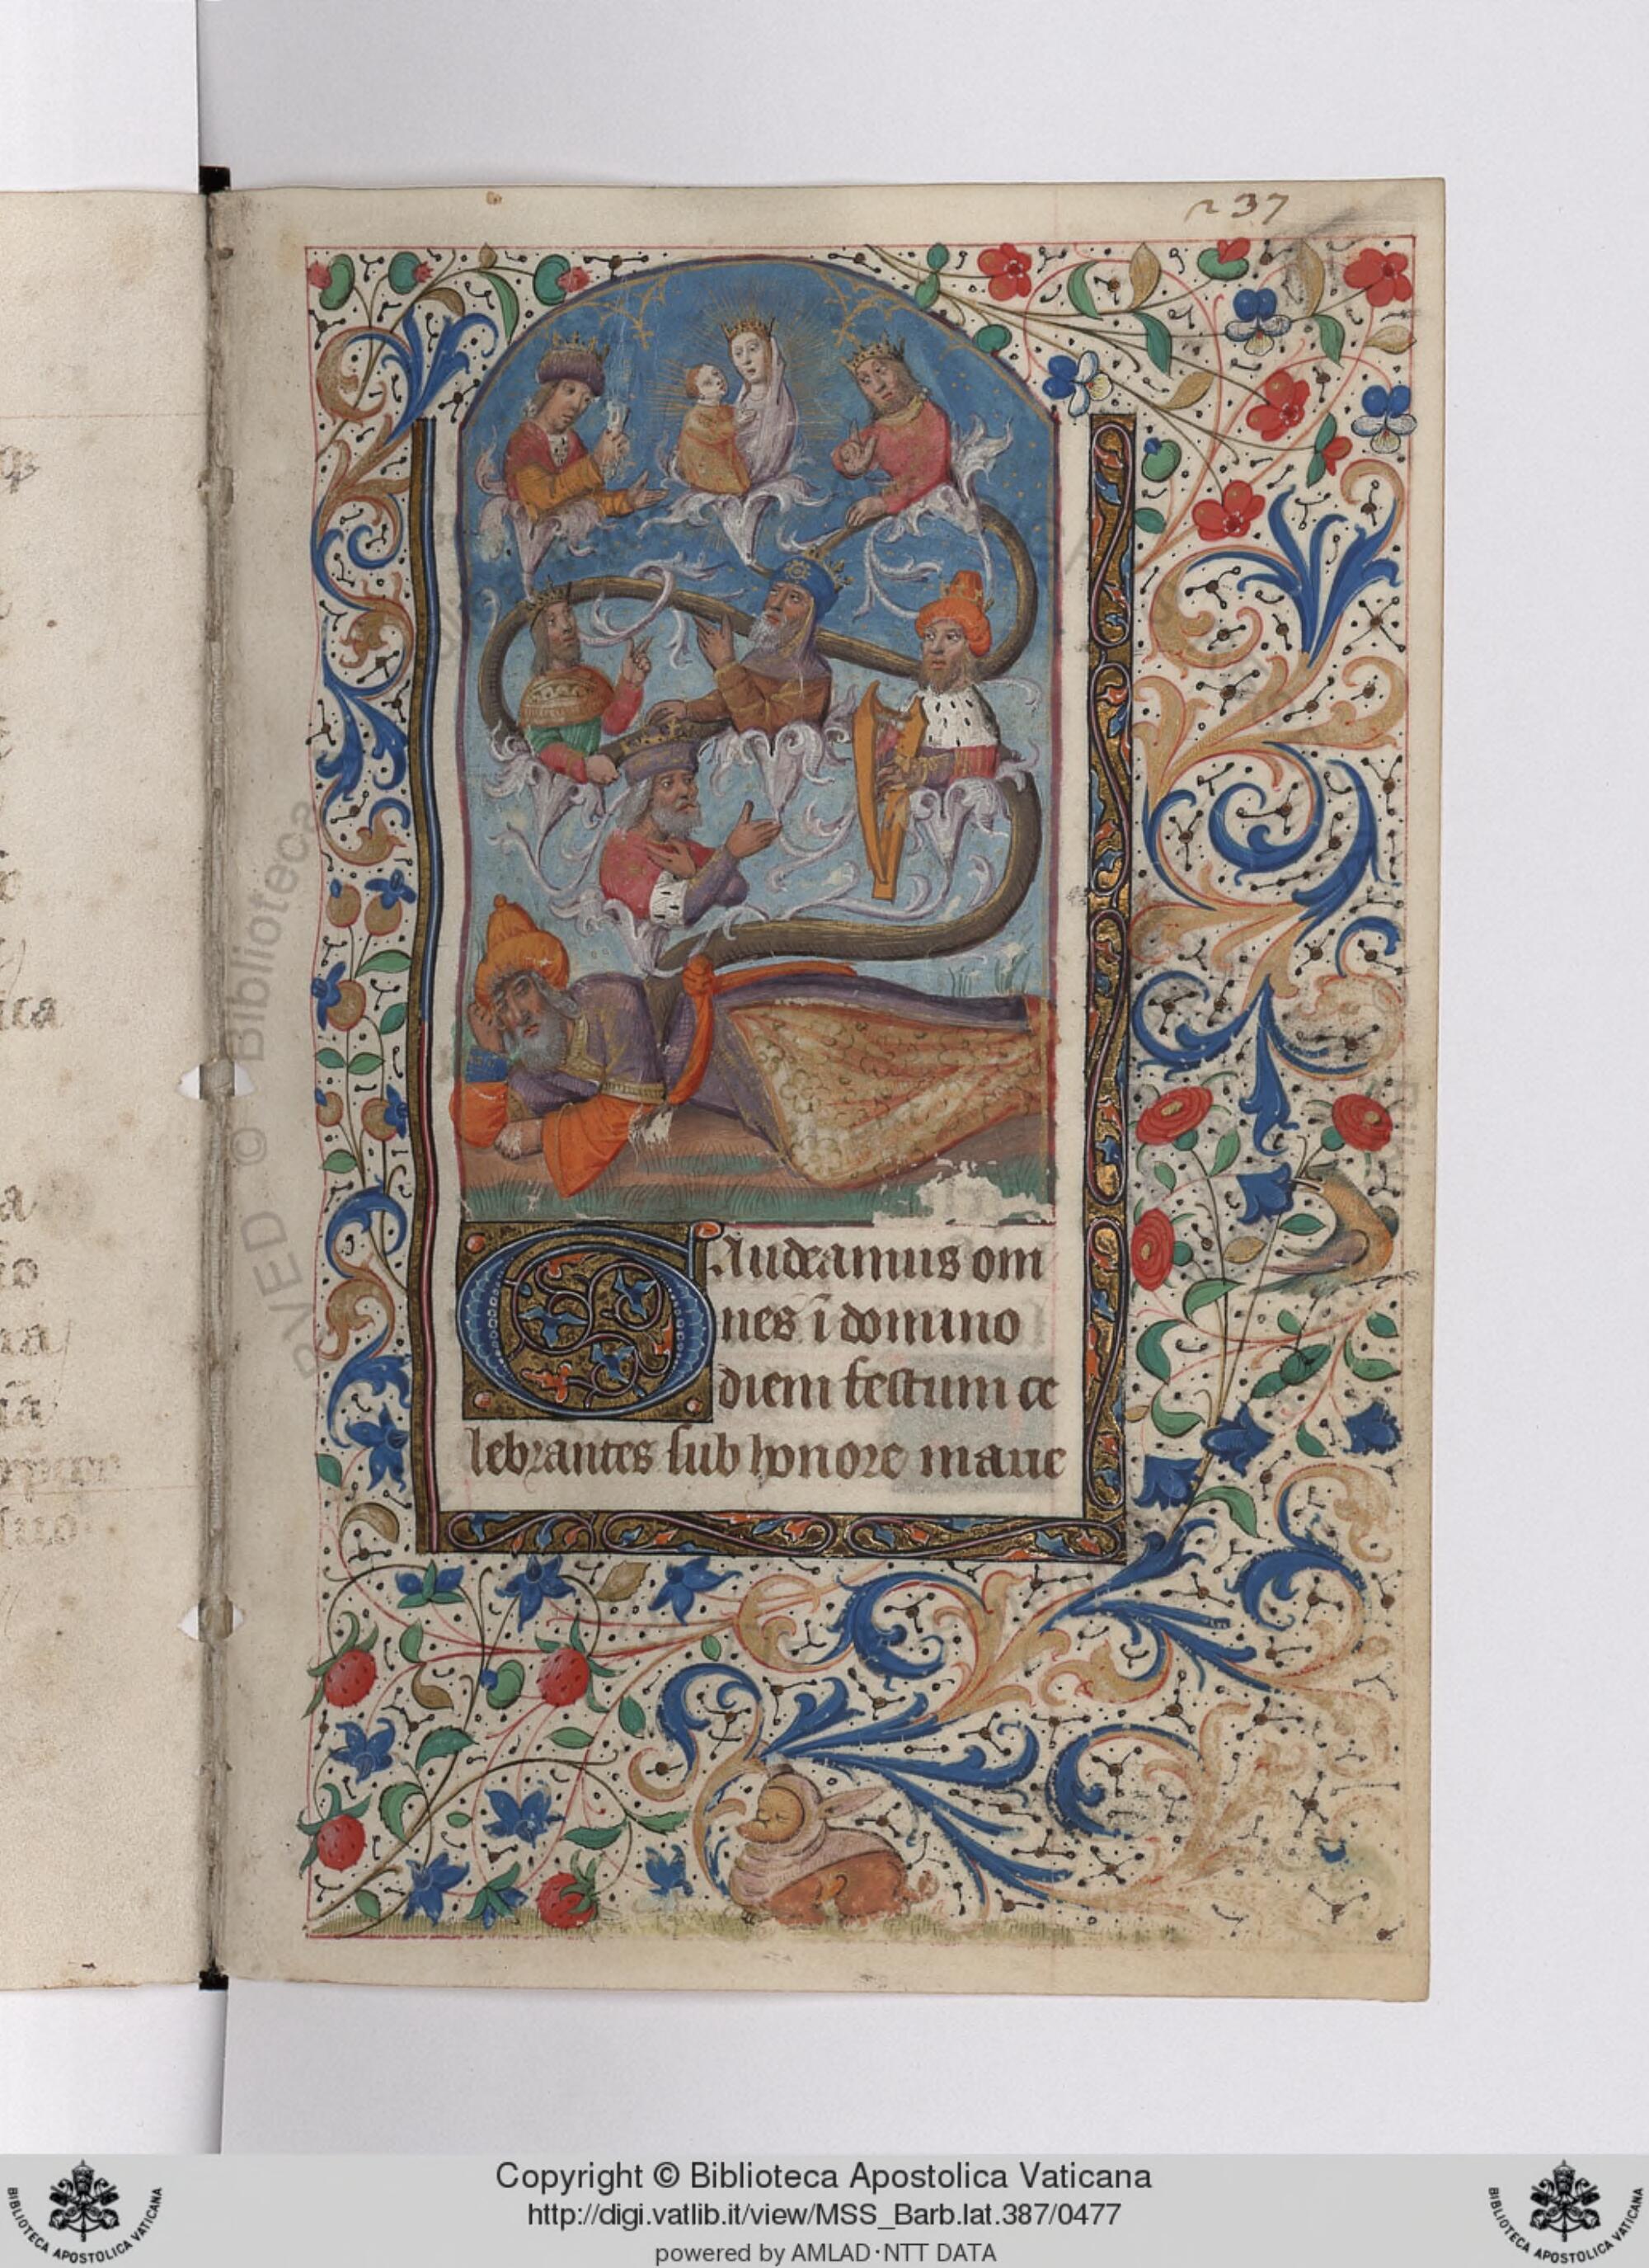 237
Gaudeamus om
nes ī domino
diem festum ce
lebrantes sub honore marie
Copyright © Biblioteca Apostolica Vaticana
http://digi.vatlib.it/view/MSS_Barb.lat.387/0477
powered by AMLAD·NTT DATA
BIBLIOTECA APOSTOLICA VATICANA
BIBLIOTECA APOSTOLICA VATICANA